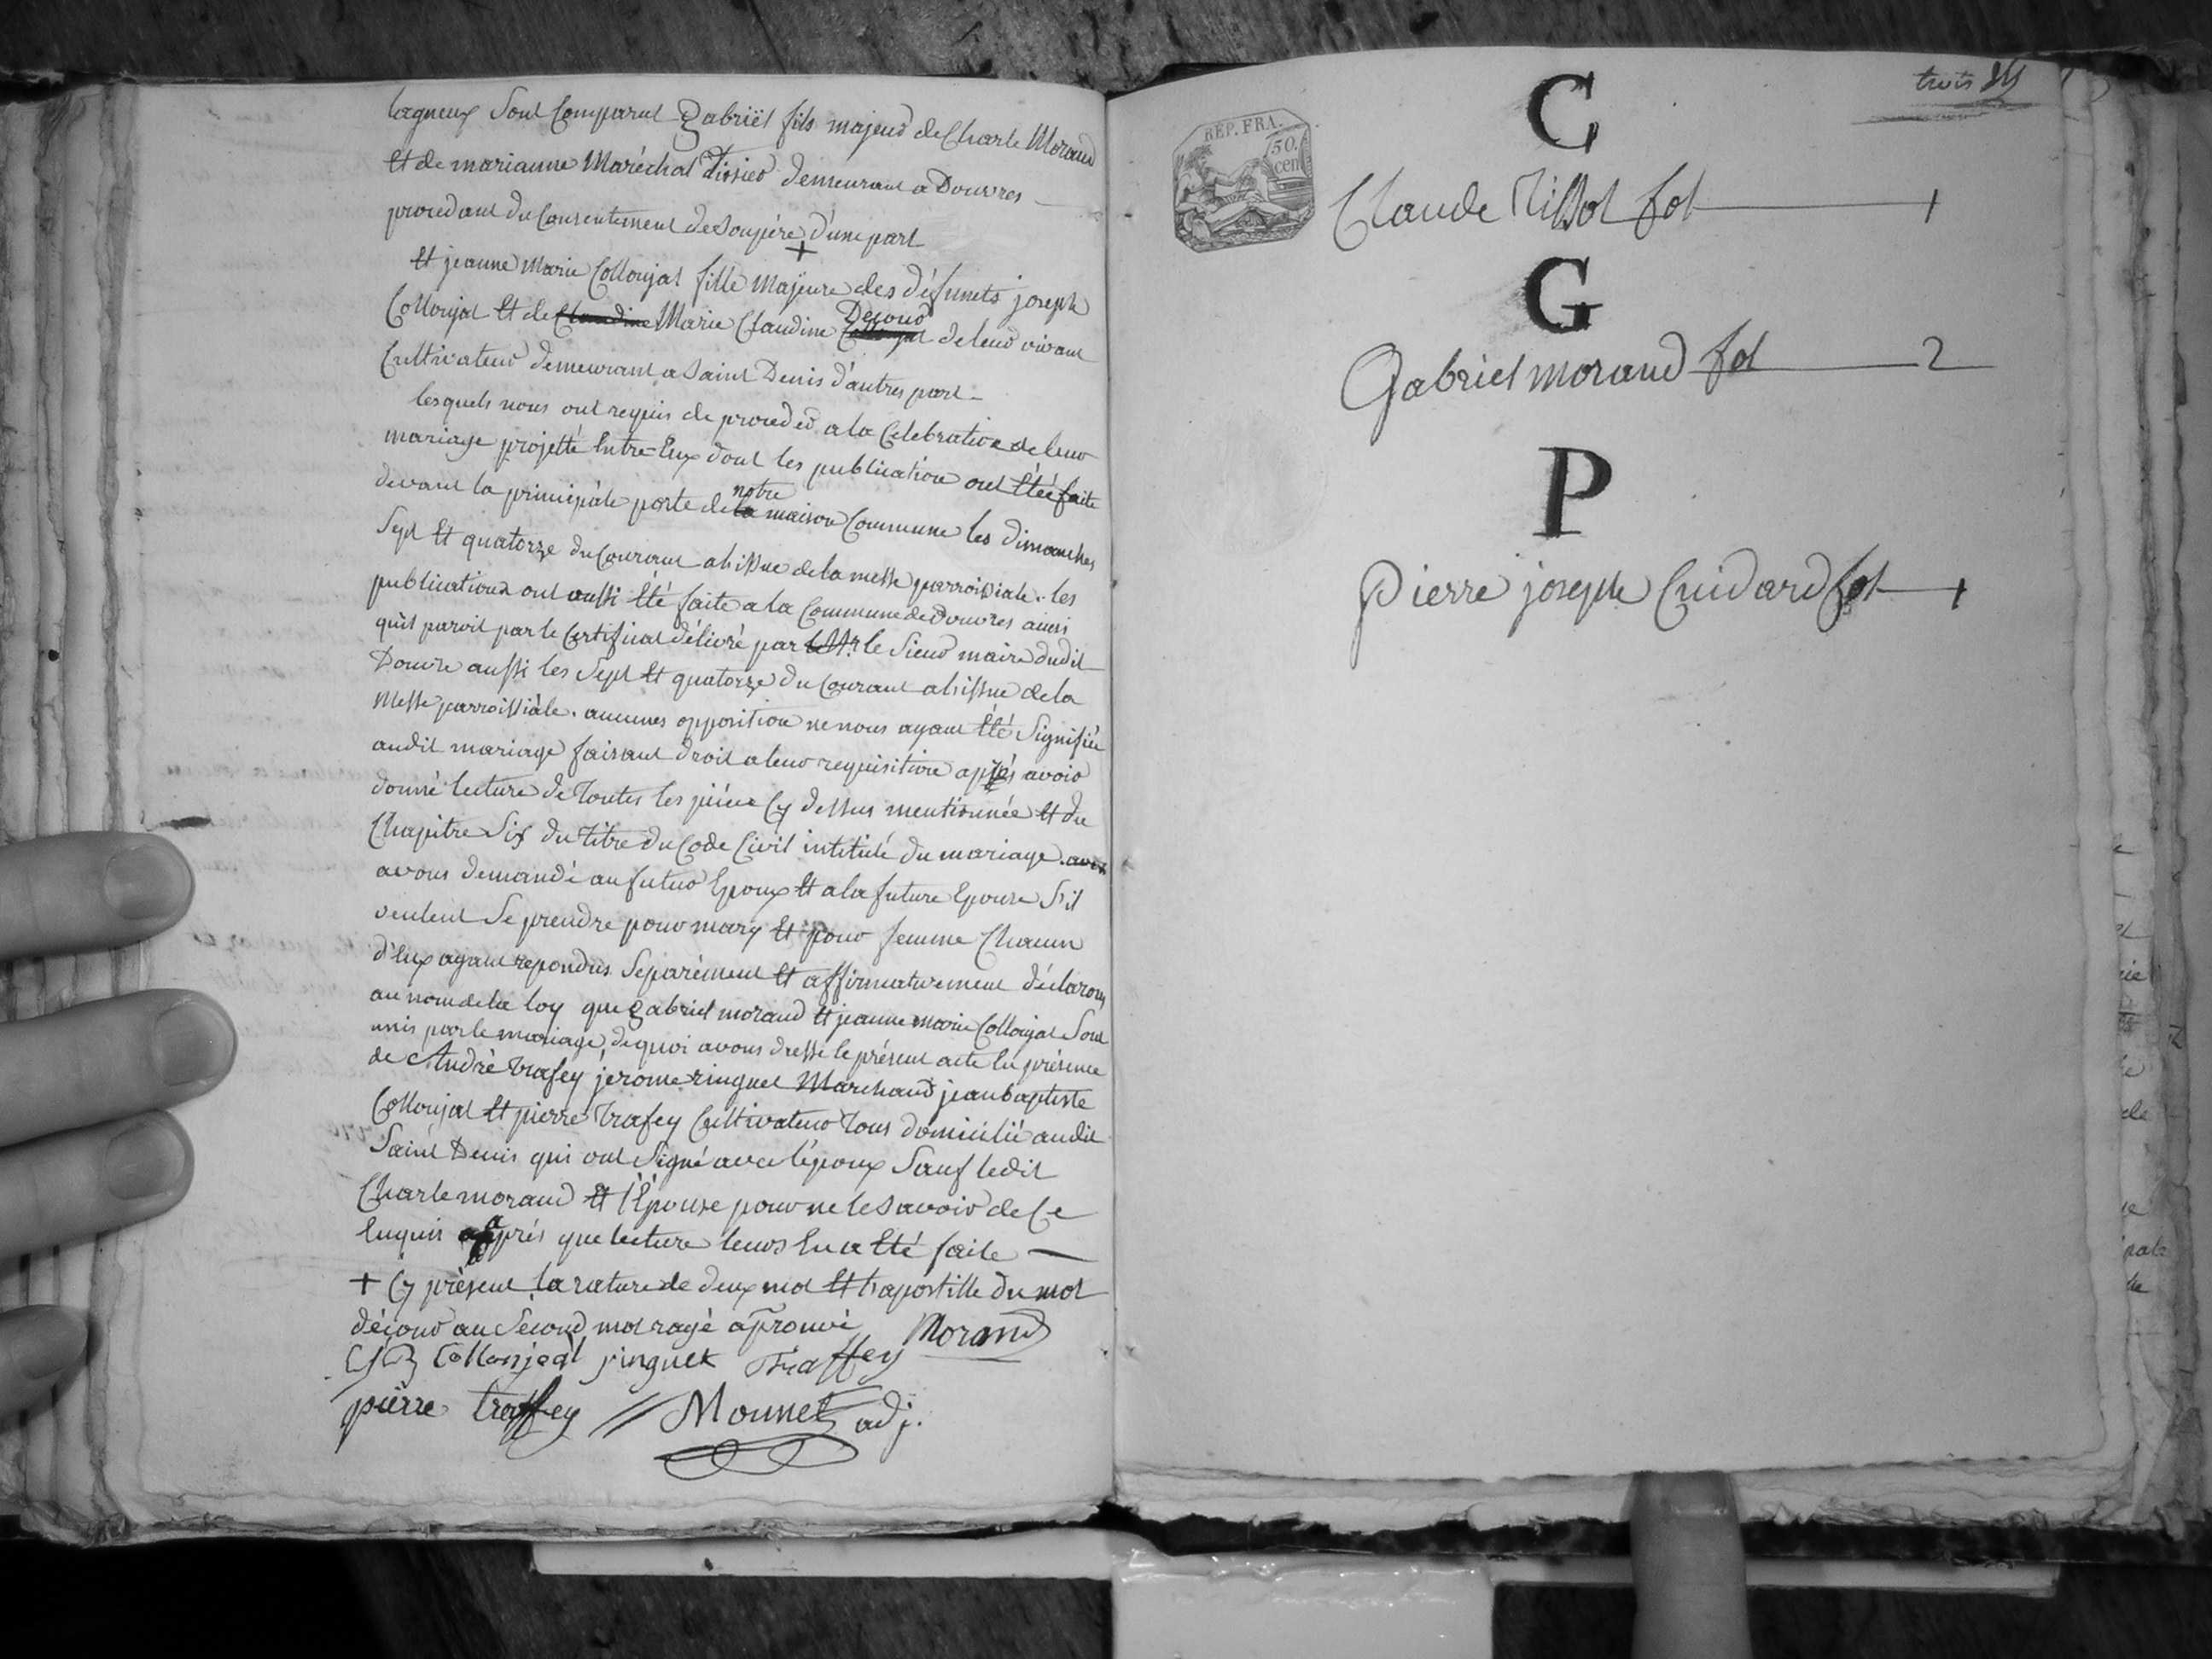 lagneux sont Comparut gabriël fils majeur de Charle Morand
Et de marianne Maréchal tissier demeurant a Douvres
procedant du Consentement de son père d'une part
+
Et jeanne Marie Collonjat fille Majeure des défunets joseph
Collonjat Et de Claudine Marie Claudine Decour de leur vivant
Cultivateur demeurant a Saint Denis d'autres part
lesquels nous ont requis de proceder a la Celebration de leur
mariage projetté Entre-Eux dont les publication ont Étéé faite
devant la principale porte de la notre maison Commune les dimanches
Sept Et quatorze du Courant a lissue de la messe parroissiale. les
publications ont aussi Été faite a la Commune de Douvres ainsi
qu'il paroit par le Certificat délivré par le Sieur maire dudit
Douvre aussi les Sept Et quatorze du Courant a lissue de la
Messe parroissiàle. aucunes opposition ne nous ayant Été Signifiée
audit mariage faisant droit a leur requisition après avoir
donné lecture de Toutes les pièce Cy dessus mentionnée Et du
Chapitre Six du titre du Code Civil intitulé du mariage.
avons demandé au futur Epoux Et a la future Epouse S'il
veulent Se prendre pour mary Et pour femme Chacun
d'Eux ayant repondus Separément Et affirmativement déclarons
au nom de la loy que gabriel morand Et jeanne marie Collonjat Sont
unis par le mariage, de quoi avons dressé le présent acte En présence
de André trafey jerome ringuet Marchand jean baptiste
Collonjat Et pierre Trafey Cultivateur Tous domicilié audit
Saint Denis qui ont Signé avec l'époux Sauf ledit
Charle morand Et l'Épouse pour ne le Savoir de Ce
Enquis après que lecture leurs En a Été faite
+ Cy présent la rature de deux mot Et l'apostille du mot
décour au Second mot rayé aprouvé Morand
Collonjeat ringuet Traffey
pierre traffey // Monnet adj.
trois
REP. FRA.
50.
cen
C
Claude Tissot fol 1
G
Gabriel morand fol 2
P
Pierre joseph Cuidard fol 1